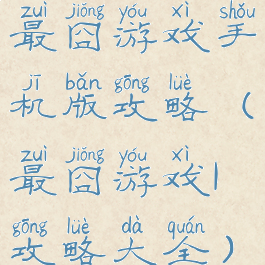 zuì jiǒng yóu xì shǒu
最囧游戏手
jī bǎn gōng lüè
机版攻略（
zuì jiǒng yóu xì
最囧游戏|
gōng lüè dà quán
攻略大全）